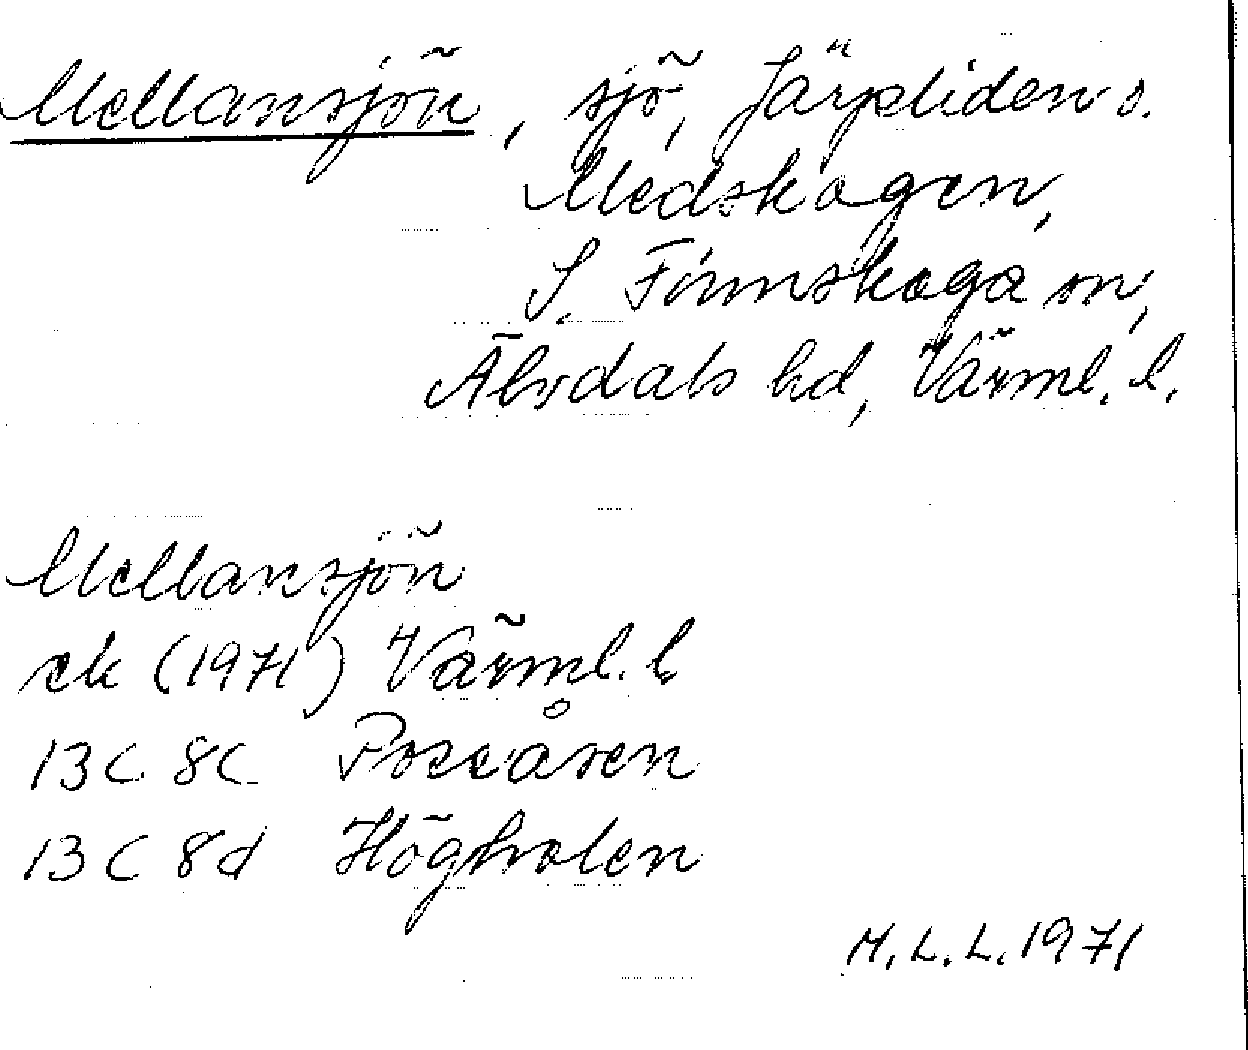 Mellansjön, sjö, Järpliden o.
Medskogen,
S. Finnskoga sn,
Älvdals hd, Värml. l.
Mellansjön
ek (1971) Värml. l
13C 8C Possåsen
13C 8d Högholen
M.L.L. 1971